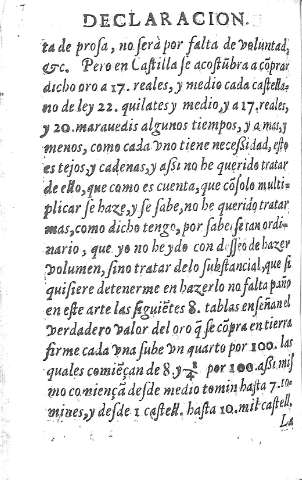 DECLARACION.
ta de prosa, no serà por falta de voluntad,
&c. Pero en Castilla se acostũbra a cõprar
dicho oro a 17. reales, y medio cada castella-
no de ley 22. quilates y medio, y a 17. reales,
y 20. marauedis algunos tiempos, y a mas, y
menos, como cada vno tiene necessidad, esto
es tejos, y cadenas, y assi no he querido tratar
de ello, que como es cuenta, que cõ solo multi-
plicar se haze, y se sabe, no he querido tratar
mas, como dicho tengo, por saberse tan ordi-
nario, que yo no he ydo con desseo de hazer
volumen, sino tratar de lo substancial, que si
quisiere detenerme en hazerlo no falta paño
en este arte las siguiẽtes 8. tablas enseñan el
verdadero valor del oro q̃ se cõpra en tierra
firme cada vna sube vn quarto por 100. las
quales comiẽçan de 8. y 1/4 por 100. assi mis
mo comiençã desde medio tomin hasta 7. to-
mines, y desde 1 castell. hasta 10. mil castell.
La